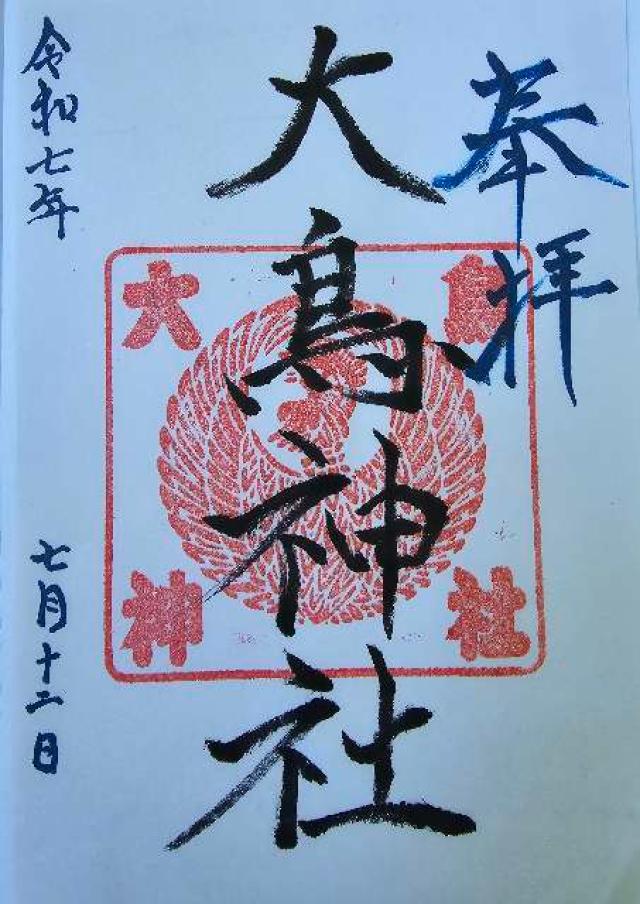 奉拝
大鳥神社
大鳥
神社
令和七年
七月十二日